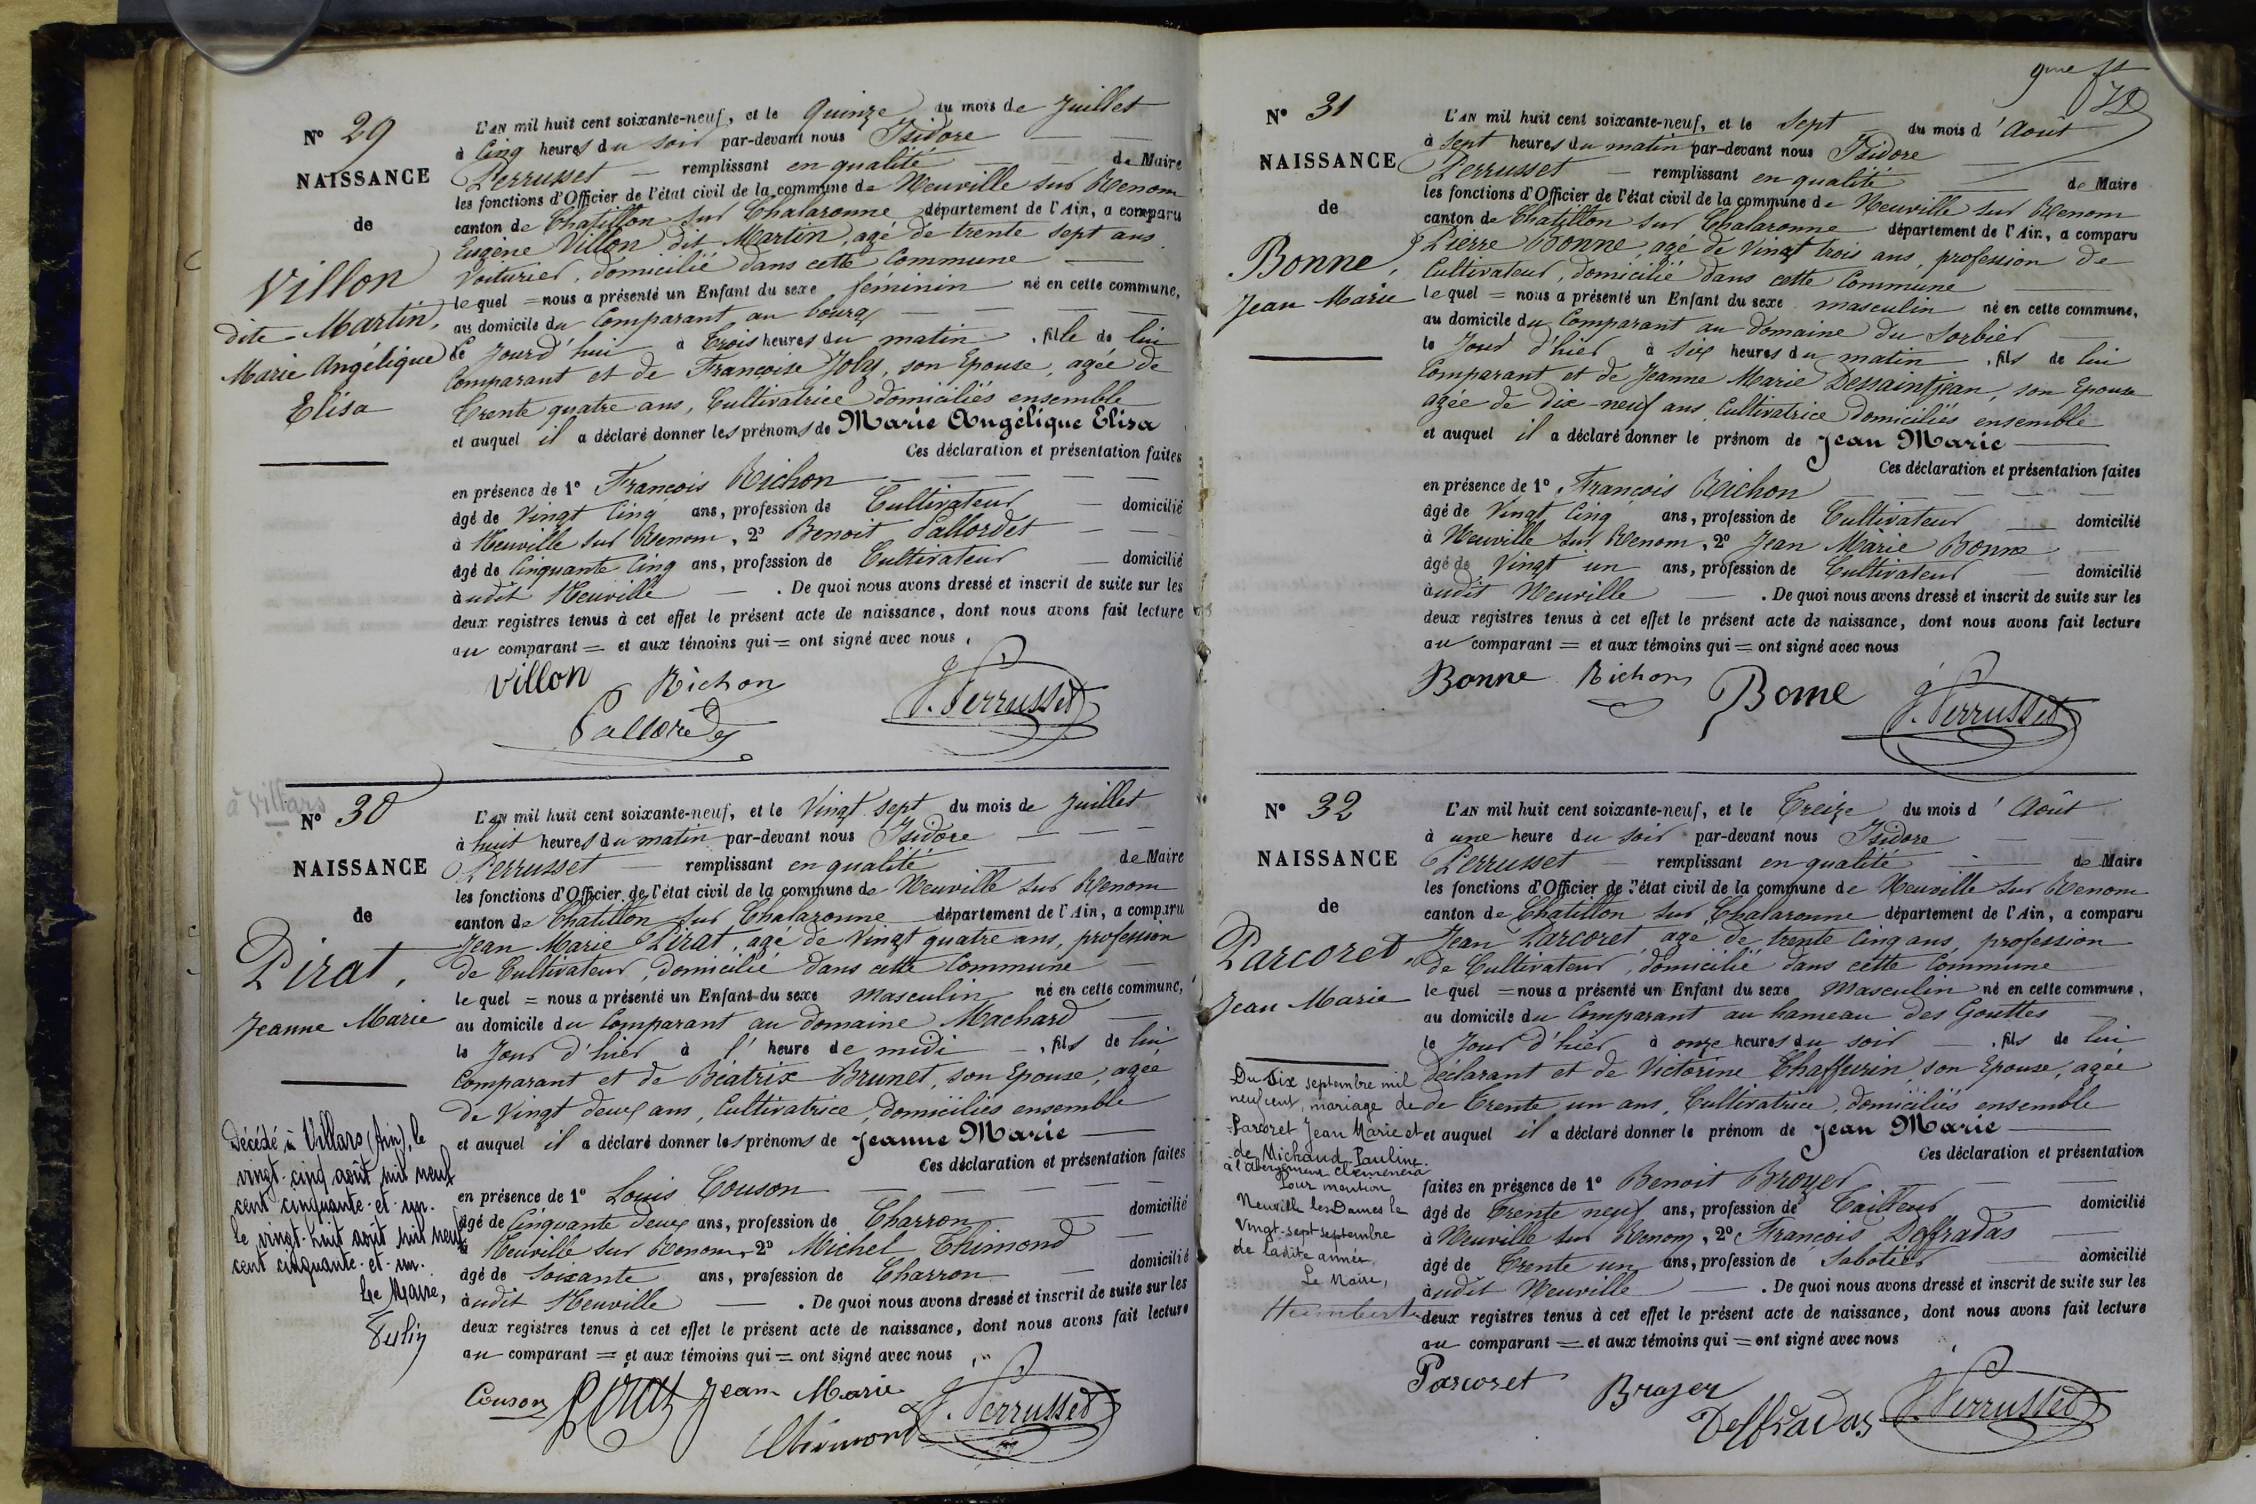 N° 29
NAISSANCE
de
Villon
dite Martin,
Marie Angélique
Elisa
L'AN mil huit cent soixante-neuf, et le Quinze du mois de Juillet
à Cinq heures du soir par-devant nous Isidore
Perrusset remplissant en qualité de Maire
les fonctions d'Officier de l'état civil de la commune de Neuville sur Renom
canton de Chatillon sur Chalaronne département de l'Ain, a comparu
Eugène Villon dit Martin, agé de trente sept ans
Voiturier, domicilié dans cette Commune
lequel = nous a présenté un Enfant du sexe féminin né en cette commune,
au domicile du Comparant au bourg
le Jourd'hui à Trois heures du matin, fille de lui
Comparant et de Françoise Joly, son Epouse, agée de
Trente quatre ans, Cultivatrice domiciliés ensemble
et auquel il a déclaré donner les prénoms de Marie Angélique Elisa
Ces déclaration et présentation faites
en présence de 1° François Richon
âgé de Vingt Cinq ans, profession de Cultivateur domicilié
à Neuville sur Renom, 2° Benoit Pallordet
âgé de Cinquante Cinq ans, profession de Cultivateur domicilié
audit Neuville. De quoi nous avons dressé et inscrit de suite sur les
deux registres tenus à cet effet le présent acte de naissance, dont nous avons fait lecture
au comparant = et aux témoins qui = ont signé avec nous.
Villon Richon
J. Perrusset
à Villars
N° 30
NAISSANCE
de
Pirat,
Jeanne Marie
Décédé à Villars (Ain), le
vingt-cinq août mil neuf
cent cinquante-et-un.
Le vingt-huit août mil neuf
cent cinquante-et-un.
Le Maire,
L'AN mil huit cent soixante-neuf, et le Vingt sept du mois de Juillet
à huit heures du matin par-devant nous Isidore
Perrusset remplissant en qualité de Maire
les fonctions d'Officier de l'état civil de la commune de Neuville sur Renom
canton de Chatillon sur Chalaronne département de l'Ain, a comparu
Jean Marie Pirat, agé de Vingt quatre ans, profession
de Cultivateur, domicilié dans cette Commune
lequel = nous a présenté un Enfant du sexe masculin né en cette commune,
au domicile du Comparant au domaine Machard
le Jour d'hier à l' heure de midi, fils de lui
Comparant et de Béatrix Brunet, son Epouse, agée
de Vingt deux ans, Cultivatrice, domiciliés ensemble
et auquel il a déclaré donner les prénoms de Jeanne Marie
Ces déclaration et présentation faites
en présence de 1° Louis Couson
âgé de Cinquante deux ans, profession de Charron domicilié
à Neuville sur Renom, 2° Michel Thimond
âgé de Soixante ans, profession de Charron domicilié
audit Neuville. De quoi nous avons dressé et inscrit de suite sur les
deux registres tenus à cet effet le présent acte de naissance, dont nous avons fait lecture
au comparant = et aux témoins qui = ont signé avec nous
Couson Pirat Jean Marie
Thimond J. Perrusset
9me ft
N° 31
NAISSANCE
de
Bonne,
Jean Marie
L'AN mil huit cent soixante-neuf, et le Sept du mois d'Août
à Sept heures du matin par-devant nous Isidore
Perrusset remplissant en qualité de Maire
les fonctions d'Officier de l'état civil de la commune de Neuville sur Renom
canton de Chatillon sur Chalaronne département de l'Ain, a comparu
Pierre Bonne, agé de Vingt trois ans, profession de
Cultivateur, domicilié dans cette Commune
lequel = nous a présenté un Enfant du sexe masculin né en cette commune,
au domicile du Comparant au Domaine du Sorbier
le Jour d'hier à Six heures du matin, fils de lui
Comparant et de Jeanne Marie Dessaintjean, son Epouse
agée de dix-neuf ans Cultivatrice domiciliés ensemble
et auquel il a déclaré donner le prénom de Jean Marie
Ces déclaration et présentation faites
en présence de 1° François Richon
âgé de Vingt Cinq ans, profession de Cultivateur domicilié
à Neuville sur Renom, 2° Jean Marie Bonne
âgé de Vingt un ans, profession de Cultivateur domicilié
audit Neuville. De quoi nous avons dressé et inscrit de suite sur les
deux registres tenus à cet effet le présent acte de naissance, dont nous avons fait lecture
au comparant = et aux témoins qui = ont signé avec nous
Bonne Richon Bonne J. Perrusset
N° 32
NAISSANCE
de
Parcoret,
Jean Marie
Du Six septembre mil
neuf cent, mariage de
Parcoret Jean Marie et
de Michaud Pauline
à l'abergement Clémencia
Pour mention
Neuville les Dames le
vingt-sept septembre
de ladite année,
Le Maire,
Humbert
L'AN mil huit cent soixante-neuf, et le Treize du mois d'Août
à une heure du soir par-devant nous Isidore
Perrusset remplissant en qualité de Maire
les fonctions d'Officier de l'état civil de la commune de Neuville sur Renom
canton de Chatillon sur Chalaronne département de l'Ain, a comparu
Jean Parcoret, agé de trente Cinq ans, profession
de Cultivateur, domicilié dans cette Commune
lequel = nous a présenté un Enfant du sexe Masculin né en cette commune,
au domicile du Comparant au hameau des Gouttes
le Jour d'hier à onze heures du soir, fils de lui
déclarant et de Victorine Chaffurin, son Epouse, agée
de Trente un ans, Cultivatrice, domiciliés ensemble
et auquel il a déclaré donner le prénom de Jean Marie
Ces déclaration et présentation
faites en présence de 1° Benoit Broyer
âgé de Trente neuf ans, profession de Tailleur domicilié
à Neuville sur Renom, 2° François Deffradas
âgé de Trente un ans, profession de Sabotier domicilié
audit Neuville. De quoi nous avons dressé et inscrit de suite sur les
deux registres tenus à cet effet le présent acte de naissance, dont nous avons fait lecture
au comparant = et aux témoins qui = ont signé avec nous
Parcoret Broyer
Deffradas J. Perrusset